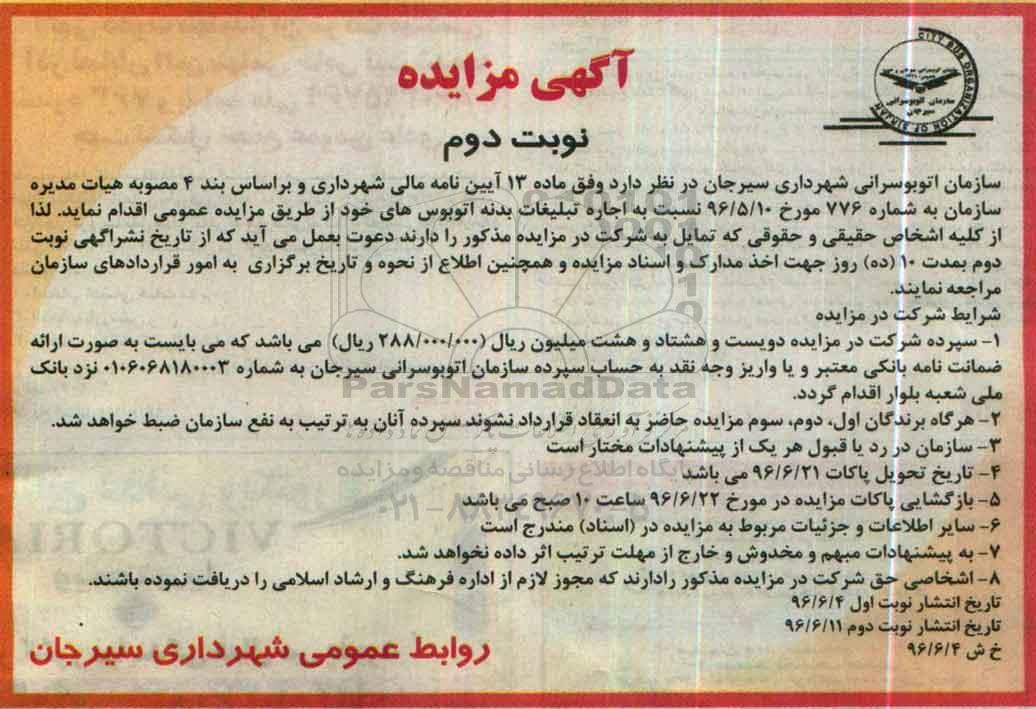 CITY BUS ORGANIZATION OF SIRJAN
سازمان اتوبوسرانی
سیرجان
آگهی مزایده
نوبت دوم
سازمان اتوبوسرانی شهرداری سیرجان در نظر دارد وفق ماده ۱۳ آیین نامه مالی شهرداری و براساس بند ۴ مصوبه هیات مدیره
سازمان به شماره ۷۷۶ مورخ ۹۶/۵/۱۰ نسبت به اجاره تبلیغات بدنه اتوبوس های خود از طریق مزایده عمومی اقدام نماید. لذا
از کلیه اشخاص حقیقی و حقوقی که تمایل به شرکت در مزایده مذکور را دارند دعوت بعمل می آید که از تاریخ نشراگهی نوبت
دوم بمدت ۱۰ (ده) روز جهت اخذ مدارک و اسناد مزایده و همچنین اطلاع از نحوه و تاریخ برگزاری به امور قراردادهای سازمان
مراجعه نمایند.
شرایط شرکت در مزایده
۱- سپرده شرکت در مزایده دویست و هشتاد و هشت میلیون ریال (۲۸۸/۰۰۰/۰۰۰ ریال) می باشد که می بایست به صورت ارائه
ضمانت نامه بانکی معتبر و یا واریز وجه نقد به حساب سپرده سازمان اتوبوسرانی سیرجان به شماره ۰۱۰۶۰۶۸۱۸۰۰۰۳ نزد بانک
ملی شعبه بلوار اقدام گردد.
۲- هرگاه برندگان اول، دوم، سوم مزایده حاضر به انعقاد قرارداد نشوند سپرده آنان به ترتیب به نفع سازمان ضبط خواهد شد.
۳- سازمان در رد یا قبول هر یک از پیشنهادات مختار است
۴- تاریخ تحویل پاکات ۹۶/۶/۲۱ می باشد
۵- بازگشایی پاکات مزایده در مورخ ۹۶/۶/۲۲ ساعت ۱۰ صبح می باشد
۶- سایر اطلاعات و جزئیات مربوط به مزایده در (اسناد) مندرج است
۷- به پیشنهادات مبهم و مخدوش و خارج از مهلت ترتیب اثر داده نخواهد شد.
۸- اشخاصی حق شرکت در مزایده مذکور رادارند که مجوز لازم از اداره فرهنگ و ارشاد اسلامی را دریافت نموده باشند.
تاریخ انتشار نوبت اول ۹۶/۶/۴
تاریخ انتشار نوبت دوم ۹۶/۶/۱۱
خ ش ۹۶/۶/۴
روابط عمومی شهرداری سیرجان
ParsNamadData
پایگاه اطلاع رسانی مناقصه و مزایده